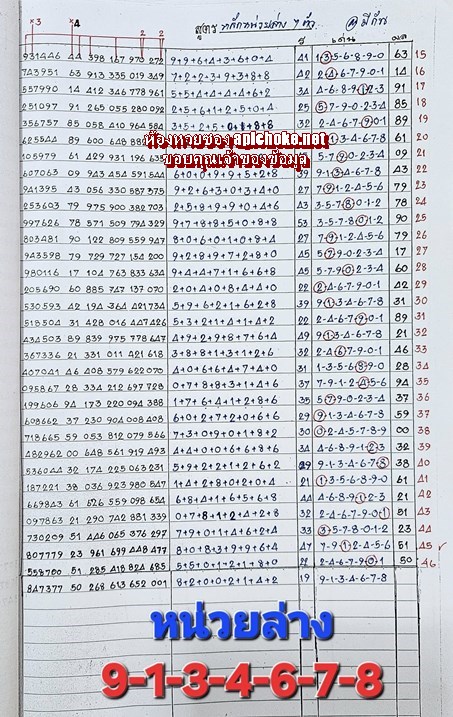 ×3 ×4 2 2
สูตร หลักหน่วยล่าง 7 ตัว มีกัน
เด่น ผล
931446 44 398 167 970 272 9+9+6+4+3+6+0+4 41 1-3-5-6-8-9-0 63 15
743951 63 913 335 019 349 7+2+2+3+9+3+8+8 42 2-4-6-7-9-0-1 14 16
557990 14 412 346 778 961 5+5+4+4+4+4+6+2 34 4-6-8-9-1-2-3 91 17
251097 91 265 055 280 092 2+5+6+1+2+5+0+4 25 5-7-9-0-2-3-4 85 18
356757 85 058 410 964 584 32 2-4-6-7-8-1-9 89 19
ห้องหวยของ aplchoke.net
ขอบคุณเจ้าของข้อมูล
625544 89 1-3-4-6-7-8 61 20
105979 61 429 931 196 09 21
607063 09 943 454 591 544 6+0+0+9+9+5+2+8 39 9-1-3-4-6-7-8 43 22
941395 43 056 330 587 375 9+2+6+3+0+3+4+0 27 7-9-1-2-4-5-6 79 23
253603 79 975 900 382 703 2+5+8+9+9+0+4+6 43 3-5-7-8-0-1-2 78 24
997626 78 571 509 794 329 9+7+8+8+5+0+8+8 53 3-5-7-8-0-1-2 90 25
803481 90 122 809 559 947 8+0+6+0+1+0+8+4 27 7-9-1-2-4-5-6 79 26
943598 79 729 727 154 200 9+2+8+9+7+2+8+0 45 5-7-9-0-2-3-4 17 27
980116 17 104 763 833 634 9+4+4+7+1+6+6+8 45 5-7-9-0-2-3-4 60 28
205690 60 885 747 137 070 2+0+4+0+8+4+4+0 22 2-4-6-7-9-0-1 42 29
530593 42 194 364 421 734 5+9+6+2+1+6+2+8 39 9-1-3-4-6-7-8 31 30
518504 31 428 016 447 426 5+3+2+1+4+1+4+2 22 2-4-6-7-9-0-1 89 31
434503 89 839 975 778 647 4+9+2+9+8+7+6+4 49 9-1-3-4-6-7-8 21 32
367336 21 331 011 421 618 3+8+8+1+3+1+2+6 32 2-4-6-7-9-0-1 46 33
407041 46 408 579 622 070 4+0+6+6+4+7+4+0 31 1-3-5-6-8-9-0 28 34
095867 28 334 212 697 728 0+7+8+8+3+1+4+6 37 7-9-1-2-4-5-6 94 35
199606 94 173 220 094 388 1+7+6+4+1+2+8+6 35 5-7-9-0-2-3-4 37 36
608662 37 230 904 008 408 6+0+2+7+2+0+6+6 29 9-1-3-4-6-7-8 59 37
718665 59 053 812 079 566 7+3+0+9+0+1+8+2 30 0-2-4-5-7-8-9 00 38
482962 00 648 561 919 493 4+4+0+0+6+6+8+6 34 4-6-8-9-1-2-3 32 39
536044 32 174 225 063 231 5+9+2+2+1+2+6+2 29 9-1-3-4-6-7-8 38 40
187221 38 036 923 980 847 1+4+2+8+0+2+0+4 21 1-3-5-6-8-9-0 61 41
669843 61 626 559 098 654 6+8+4+1+6+5+6+8 44 4-6-8-9-1-2-3 21 42
097863 21 290 742 881 339 0+7+8+1+2+4+2+8 32 2-4-6-7-8-9-0-1 51 43
730209 51 446 065 376 297 7+9+0+1+4+6+2+4 33 3-5-7-8-0-1-2 23 44
807779 23 961 699 448 477 8+0+8+3+9+9+6+4 47 7-9-1-2-4-5-6 51 45
558700 51 285 418 824 685 5+5+0+1+2+1+8+0 22 2-4-6-7-9-0-1 50 46
847377 50 268 613 652 001 8+2+0+0+2+1+4+2 19 9-1-3-4-6-7-8
หน่วยล่าง
9-1-3-4-6-7-8